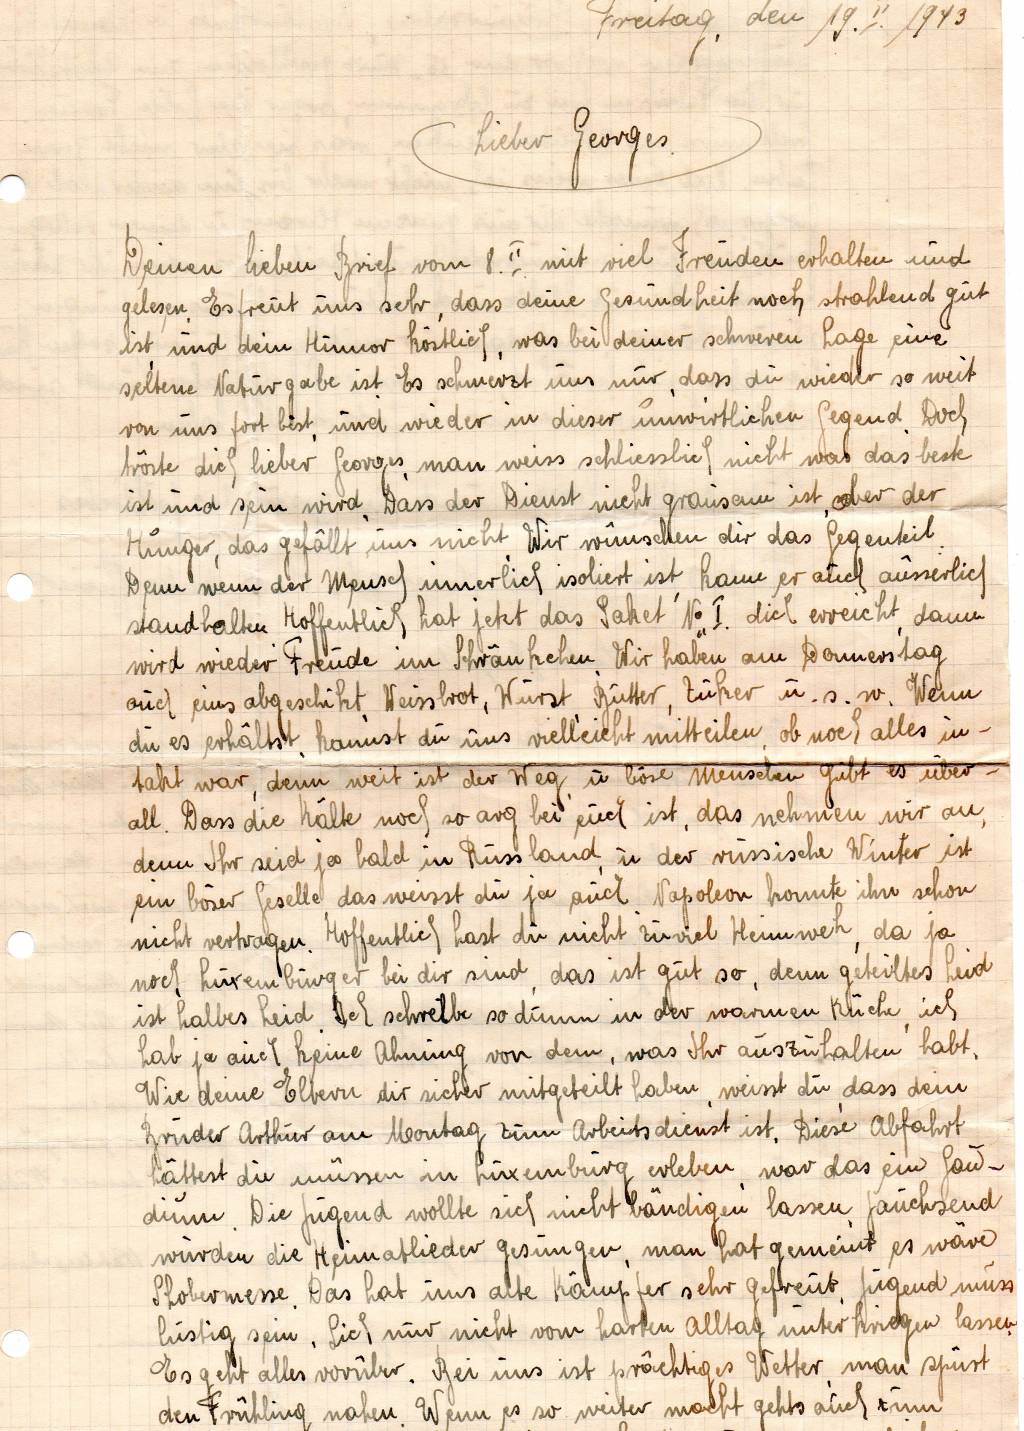 Freitag, den 19. II. 1943
Lieber Georges.
Deinen lieben Brief vom 8. II. mit viel Freuden erhalten und
gelesen. Es freut uns sehr, dass deine Gesundheit noch strahlend gut
ist, und dein Humor köstlich, was bei deiner schweren Lage eine
seltene Naturgabe ist. Es schmerzt uns nur, dass du wieder so weit
von uns fort bist, und wieder in dieser unwirtlichen Gegend. Doch
tröste dich lieber Georges, man weiss schliesslich nicht was das beste
ist und sein wird. Dass der Dienst nicht grausam ist, aber der
Hunger, das gefällt uns nicht. Wir wünschen dir das Gegenteil.
Denn wenn der Mensch innerlich isoliert ist, kann er auch äusserlich
standhalten. Hoffentlich hat jetzt das Paket No I. dich erreicht, dann
wird wieder Freude im Schränkchen. Wir haben am Donnerstag
auch eins abgeschikt, Weissbrot, Wurst, Butter, Zuker, u. s. w. Wenn
du es erhältst, kannst du uns vielleicht mitteilen, ob noch alles in-
takt war, denn weit ist der Weg, u böse Menschen gibt es über-
all. Dass die Kälte noch so arg bei euch ist, das nehmen wir an,
denn Ihr seid ja bald in Russland, u der russische Winter ist
ein böser Geselle, das weisst du ja auch. Napoleon konnte ihn schon
nicht vertragen. Hoffentlich hast du nicht zuviel Heimweh, da ja
noch Luxemburger bei dir sind, das ist gut so, denn geteiltes Leid
ist halbes Leid. Ich schreibe so dumm in der warmen Küche, ich
hab ja auch keine Ahnung von dem, was Ihr auszuhalten habt.
Wie deine Eltern dir sicher mitgeteilt haben, weisst du, dass dein
Bruder Arthur am Montag zum Arbeitsdienst ist. Diese Abfahrt
hättest du müssen in Luxemburg erleben, war das ein Gau-
dium. Die Jugend wollte sich nicht bändigen lassen, jauchzend
wurden die Heimatlieder gesungen, man hat gemeint es wäre
Shobermesse. Das hat uns alte Kämpfer sehr gefreut, Jugend muss
lustig sein. Sich nur nicht vom harten Alltag unterkriegen lassen.
Es geht alles vorüber. Bei uns ist prächtiges Wetter, man spürt
den Frühling nahen. Wenn es so weiter macht gehts auch zum